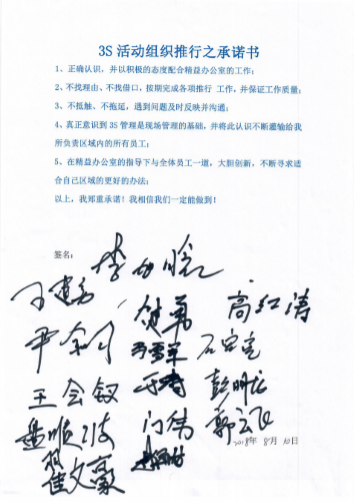 3S活动组织推行之承诺书
1、正确认识，并以积极的态度配合精益办公室的工作；
2、不找理由、不找借口，按期完成各项推行 工作，并保证工作质量；
3、不抵触、不拖延，遇到问题及时反映并沟通；
4、真正意识到 3S 管理是现场管理的基础，并将此认识不断遍输给我
所负责区域内的所有员工；
5、在精益办公室的指导下与全体员工一道，大胆创新，不断寻求适
合自己区域的更好的办法；
以上，我郑重承诺！我相信我们一定能做到！
签名：
高红涛
王会钗 彭明龙
盘顺波 门伟 郭云飞
翟文豪 2018年 8月 10日